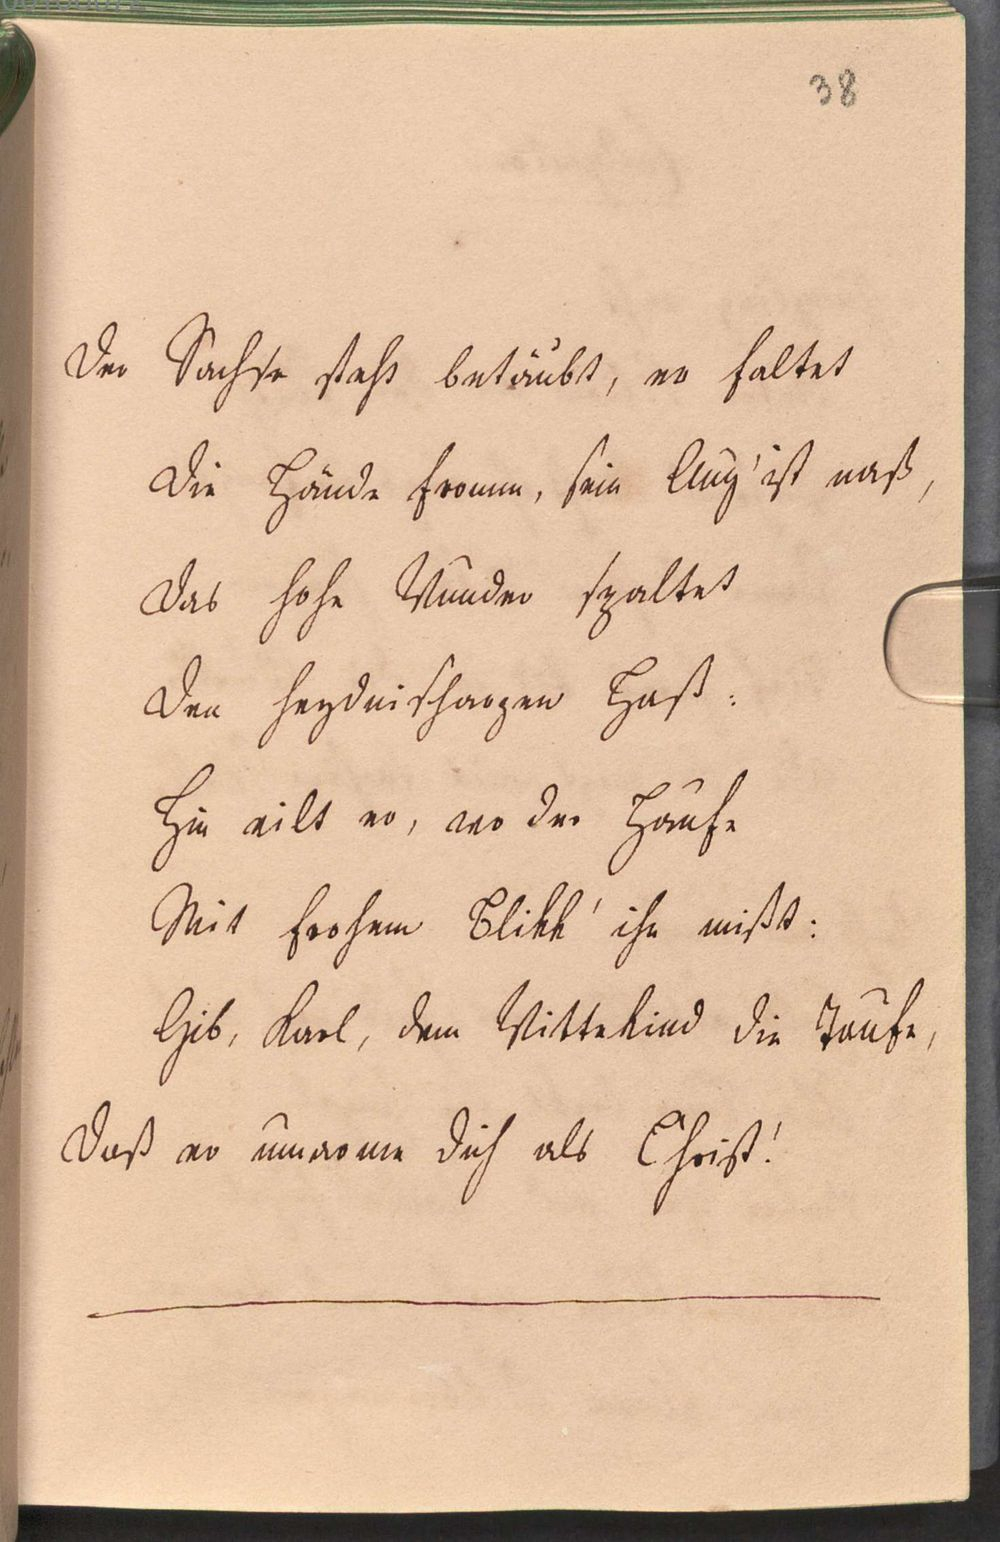 38
Der Sachse steht betäubt, er faltet
Die Hände fromm, sein Aug' ist naß,
Das hohe Wunder spaltet
Den heydnischargen Haß:
Hin eilt er, wo der Haufe
Mit frohem Blikk' ihn mißt:
Gib, Karl, dem Wittekind die Taufe,
Daß er umarme dich als Christ!